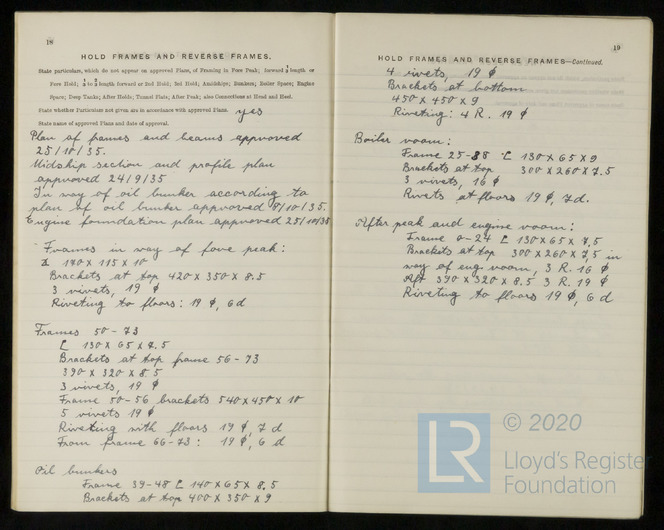 18
HOLD FRAMES AND REVERSE FRAMES.
State particulars, which do not appear on approved Plans, of Framing in Fore Peak; forward ⅓ length or
Fore Hold; ½ length forward or 2nd Hold; 3rd Hold, Amidships; Bunkers; Boiler Space; Engine
Space; Deep Tanks; After Holds; Tunnel Flats; After Peak; also Connections at Head and Heel.
State whether Particulars not given are in accordance with approved Plans. yes
State name of approved Plans and date of approval.
Plan of frames and beams approved
25/10/35.
Midship section and profile plan
approved 24/9/35
In way of oil bunker according to
plan of oil bunker approved 8/10/35.
Engine foundation plan approved 25/10/35
Frames in way of fore peak:
170 x 115 x 10
Brackets at top 420 x 350 x 8.5
3 rivets, 19 ϕ
Riveting to floors: 19 ϕ, 6 d
Frames 50-73
L 130 x 65 x 7.5
Brackets at top frame 56-73
390 x 320 x 8.5
3 rivets, 19 ϕ
Frame 50-56 brackets 540 x 450 x 10
5 rivets 19 ϕ
Riveting with floors 19 ϕ, 7 d
From frame 66-73: 19 ϕ, 6 d
Oil bunkers
Frame 39-48 L 140 x 65 x 8.5
Brackets at top 400 x 350 x 9
19
HOLD FRAMES AND REVERSE FRAMES—Continued.
4 rivets, 19 ϕ
Brackets at bottom
450 x 450 x 9
Riveting: 4 R. 19 ϕ
Boiler room:
Frame 25-38 L 130 x 65 x 9
Brackets at top 300 x 260 x 7.5
3 rivets, 16 ϕ
Rivets at floors 19 ϕ, 7d.
After peak and engine room:
Frame 0-24 L 130 x 65 x 7,5
Brackets at top 300 x 260 x 7,5 in
way of eng. room, 3 R. 16 ϕ
Aft 390 x 320 x 8.5 3 R. 19 ϕ
Riveting to floors 19 ϕ, 6 d
LR
© 2020
Lloyd's Register
Foundation